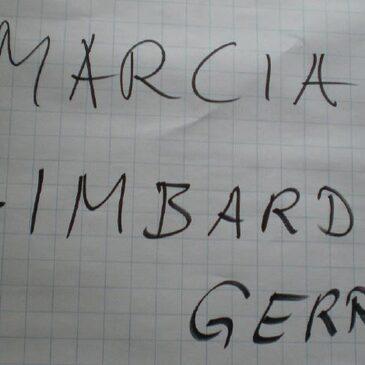 MARCIA
IMBARD
GERR